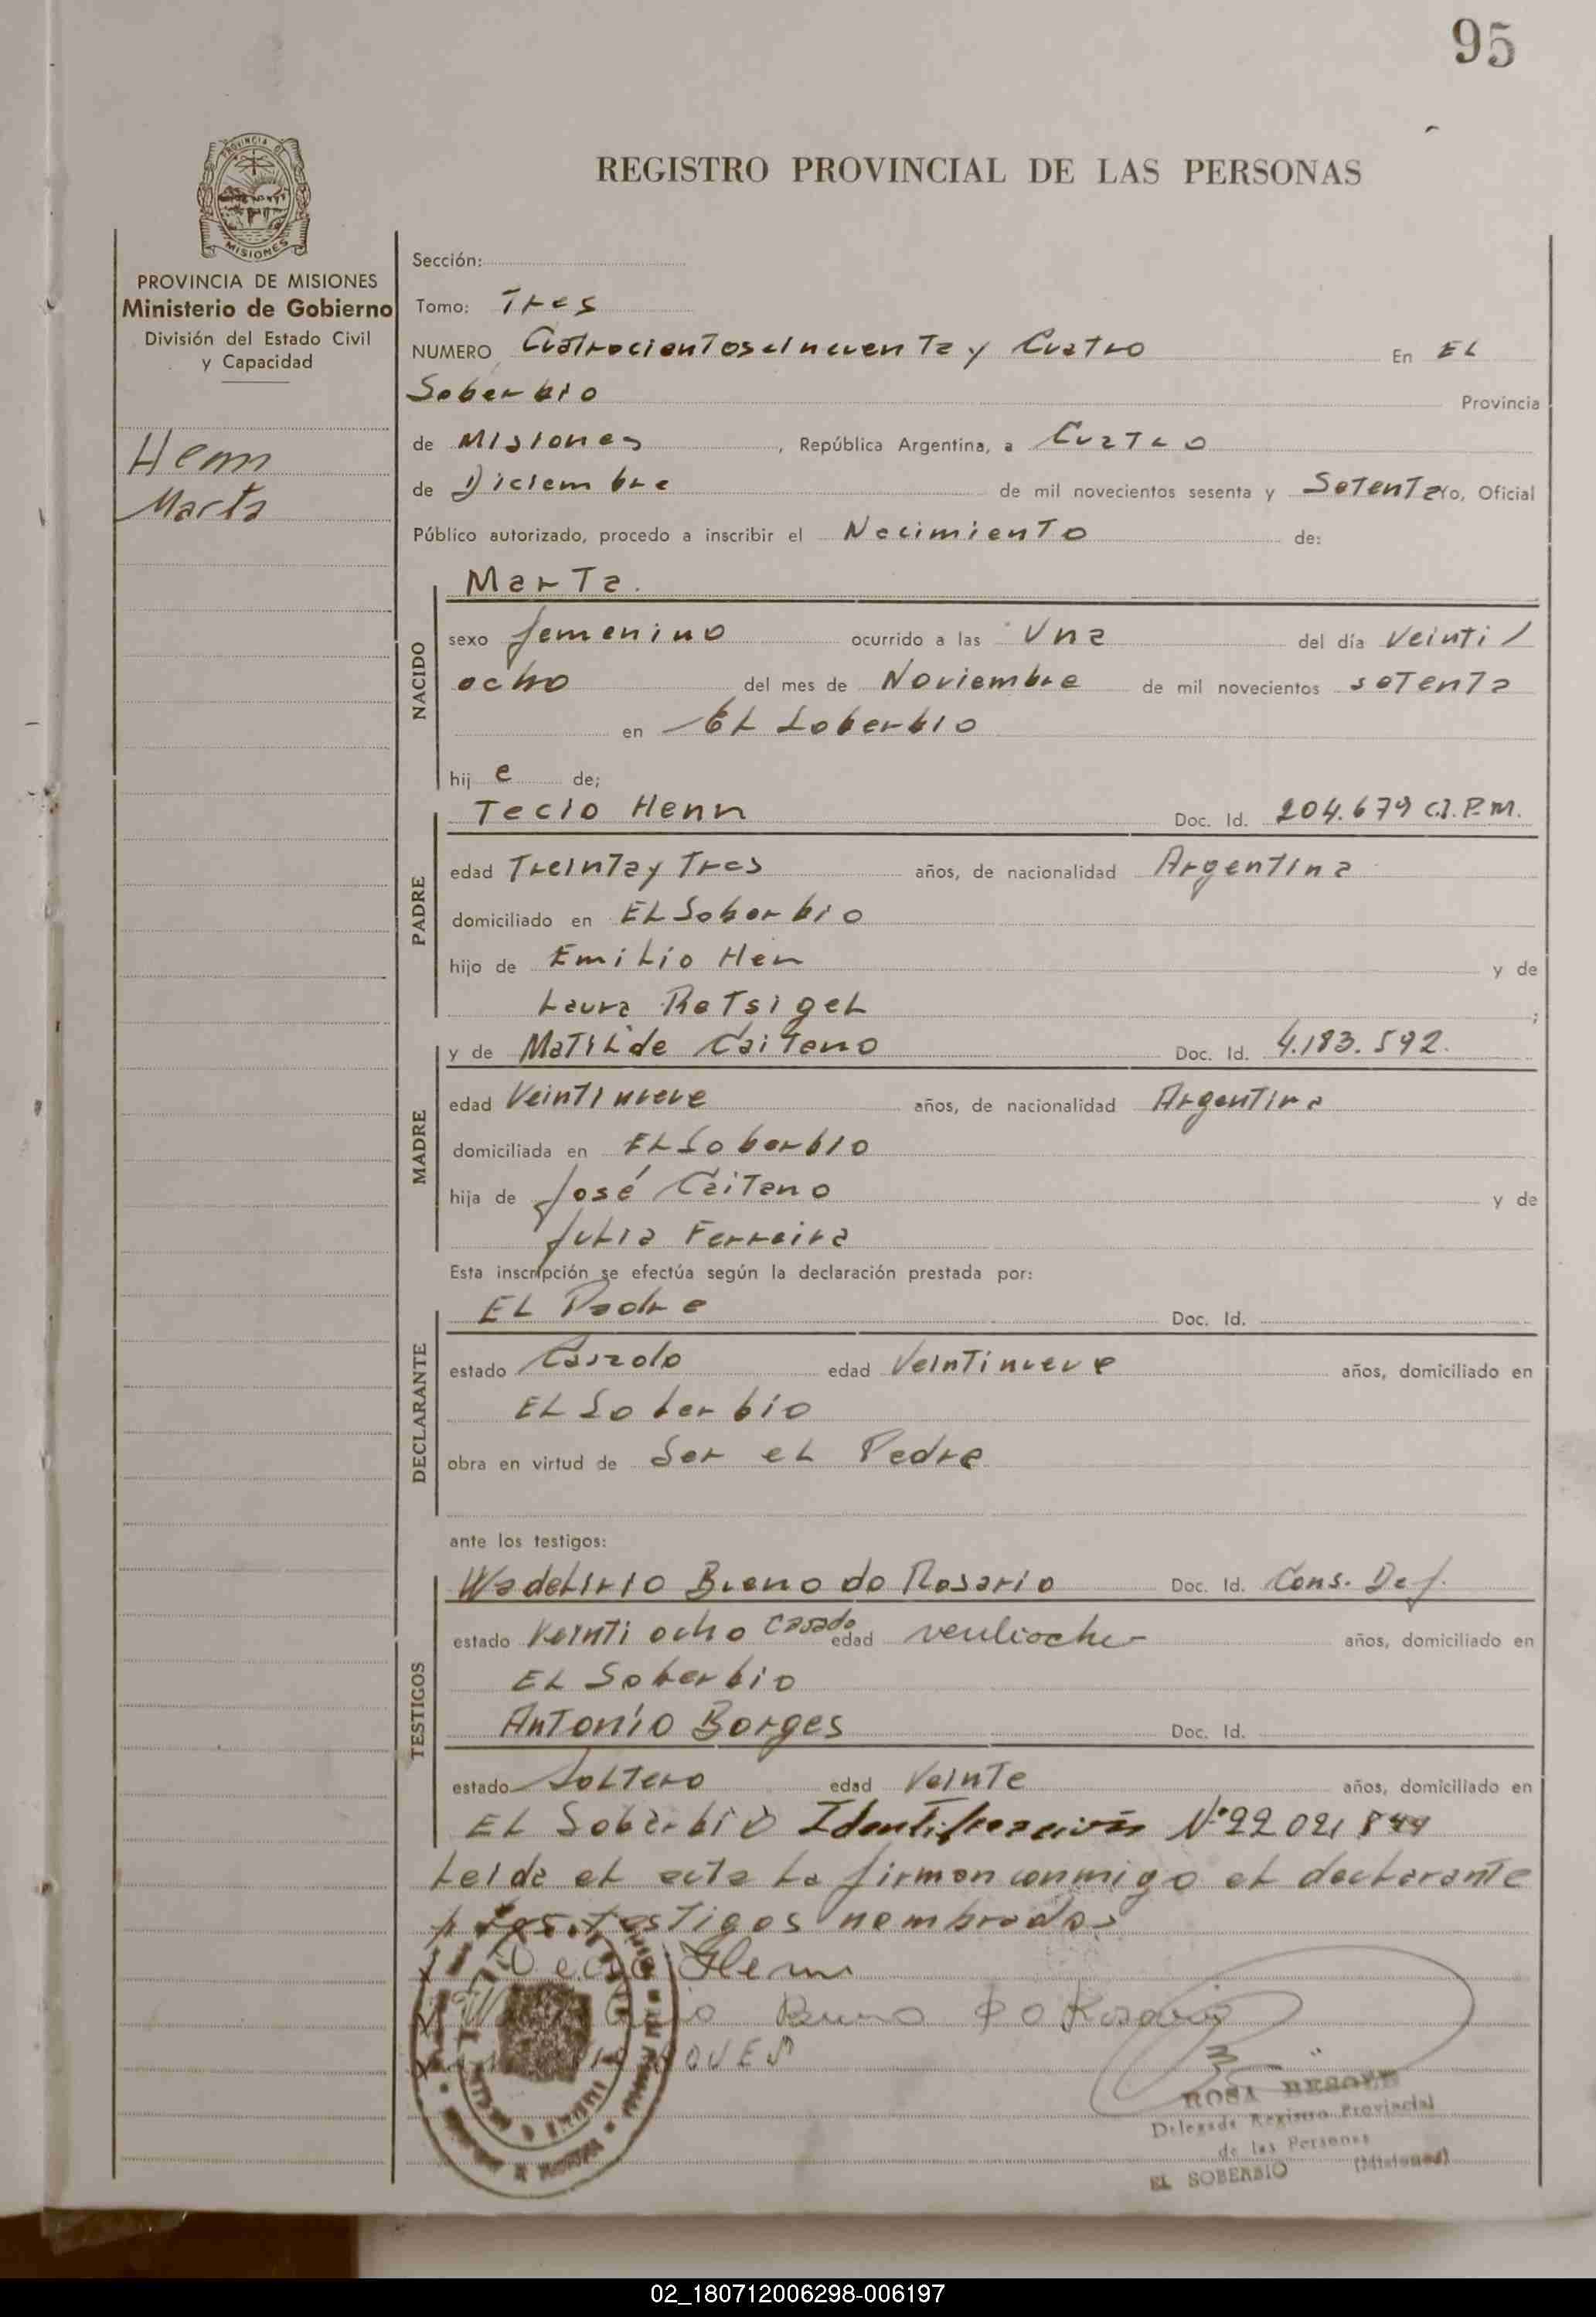 95
PROVINCIA DE
MISIONES
REGISTRO PROVINCIAL DE LAS PERSONAS
PROVINCIA DE MISIONES
Ministerio de Gobierno
División del Estado Civil
y Capacidad
Henn
Marta
Sección:
Tomo: Tres
NUMERO Cuatrocientos cincuenta y Cuatro En EL
Soberbio Provincia
de Misiones, República Argentina, a Cuatro
de Diciembre de mil novecientos sesenta y Setenta yo, Oficial
Público autorizado, procedo a inscribir el Nacimiento de:
Marta.
NACIDO
sexo femenino ocurrido a las Una del día Veinti
ocho del mes de Noviembre de mil novecientos setenta
en EL Soberbio
hij a de;
PADRE
Tecio Henn Doc. Id. 204.679 C.I.P.M.
edad Treinta y Tres años, de nacionalidad Argentina
domiciliado en EL Soberbio
hijo de Emilio Hen y de
Laura Ratsigel ;
MADRE
y de Matilde Caitano Doc. Id. 4.183.592.
edad Veintinueve años, de nacionalidad Argentina
domiciliada en EL Soberbio
hija de José Caitano y de
Julia Ferreira
Esta inscripción se efectúa según la declaración prestada por:
DECLARANTE
EL Padre Doc. Id.
estado Casado edad Veintinueve años, domiciliado en
EL Soberbio
obra en virtud de Ser el Padre
ante los testigos:
TESTIGOS
Wadelirio Bueno do Rosario Doc. Id. Cons. Def.
estado Veinti ocho casado edad veintiocho años, domiciliado en
EL Soberbio
Antonio Borges Doc. Id.
estado Soltero edad Veinte años, domiciliado en
EL Soberbio Identificación Nº 22 021 844
Leida el acta la firman conmigo el declarante
y los testigos nombrados
Tecio Henn
Bueno do Rosario
ROSA
Delegada Registro Provincial
de las Personas
EL SOBERBIO (Misiones)
02_180712006298-006197